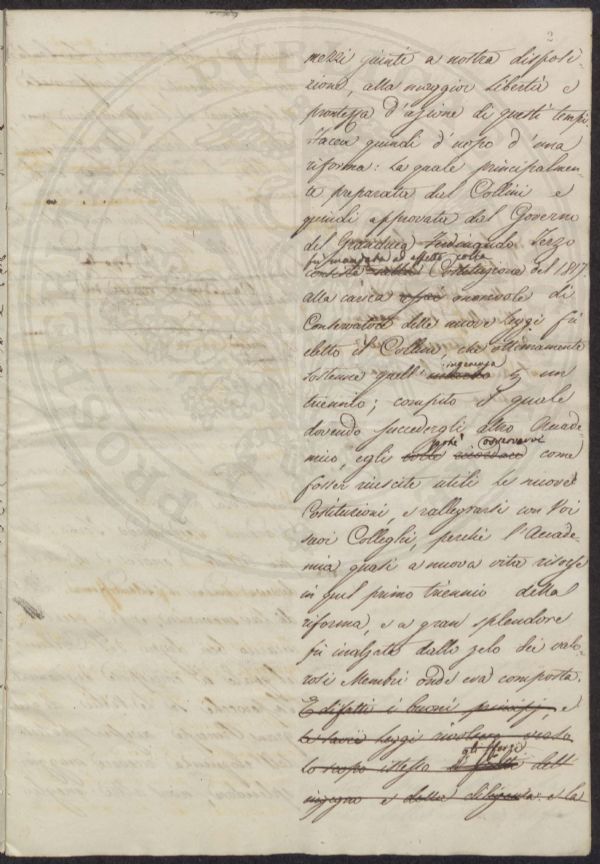 2
mezzi giunti a nostra disposi-
zione, alla maggior libertà e
prontezza d'azione di questi tempi.
Facea quindi d'uopo d'una
riforma: la quale principalmen-
te preparata dal Collini e
quindi approvata dal Governo
del Granduca Ferdinando Terzo
fu mandata ad effetto colla
Costituzione del 1817.
alla carica onorevole di
Conservatore delle nuove Leggi fu
eletto il Collini, che ottimamente
ingerenza
sostenne quell' un
triennio; compito il quale
dovendo succedergli altro Acade-
potè osservarvi
mico, egli come
fosser riuscite utili le nuove
Costituzioni, e rallegrarsi con Voi
suoi Colleghi, perchè l'Accade-
mia quasi a nuova vita risorse
in quel primo triennio della
riforma, e a gran splendore
fu inalzata dallo zelo dei valo-
rosi Membri onde era composta.
E difatti i buoni principj, e
le savie Leggi
gli sforzi
lo scopo istesso dell'
ingegno e della diligenza. e la